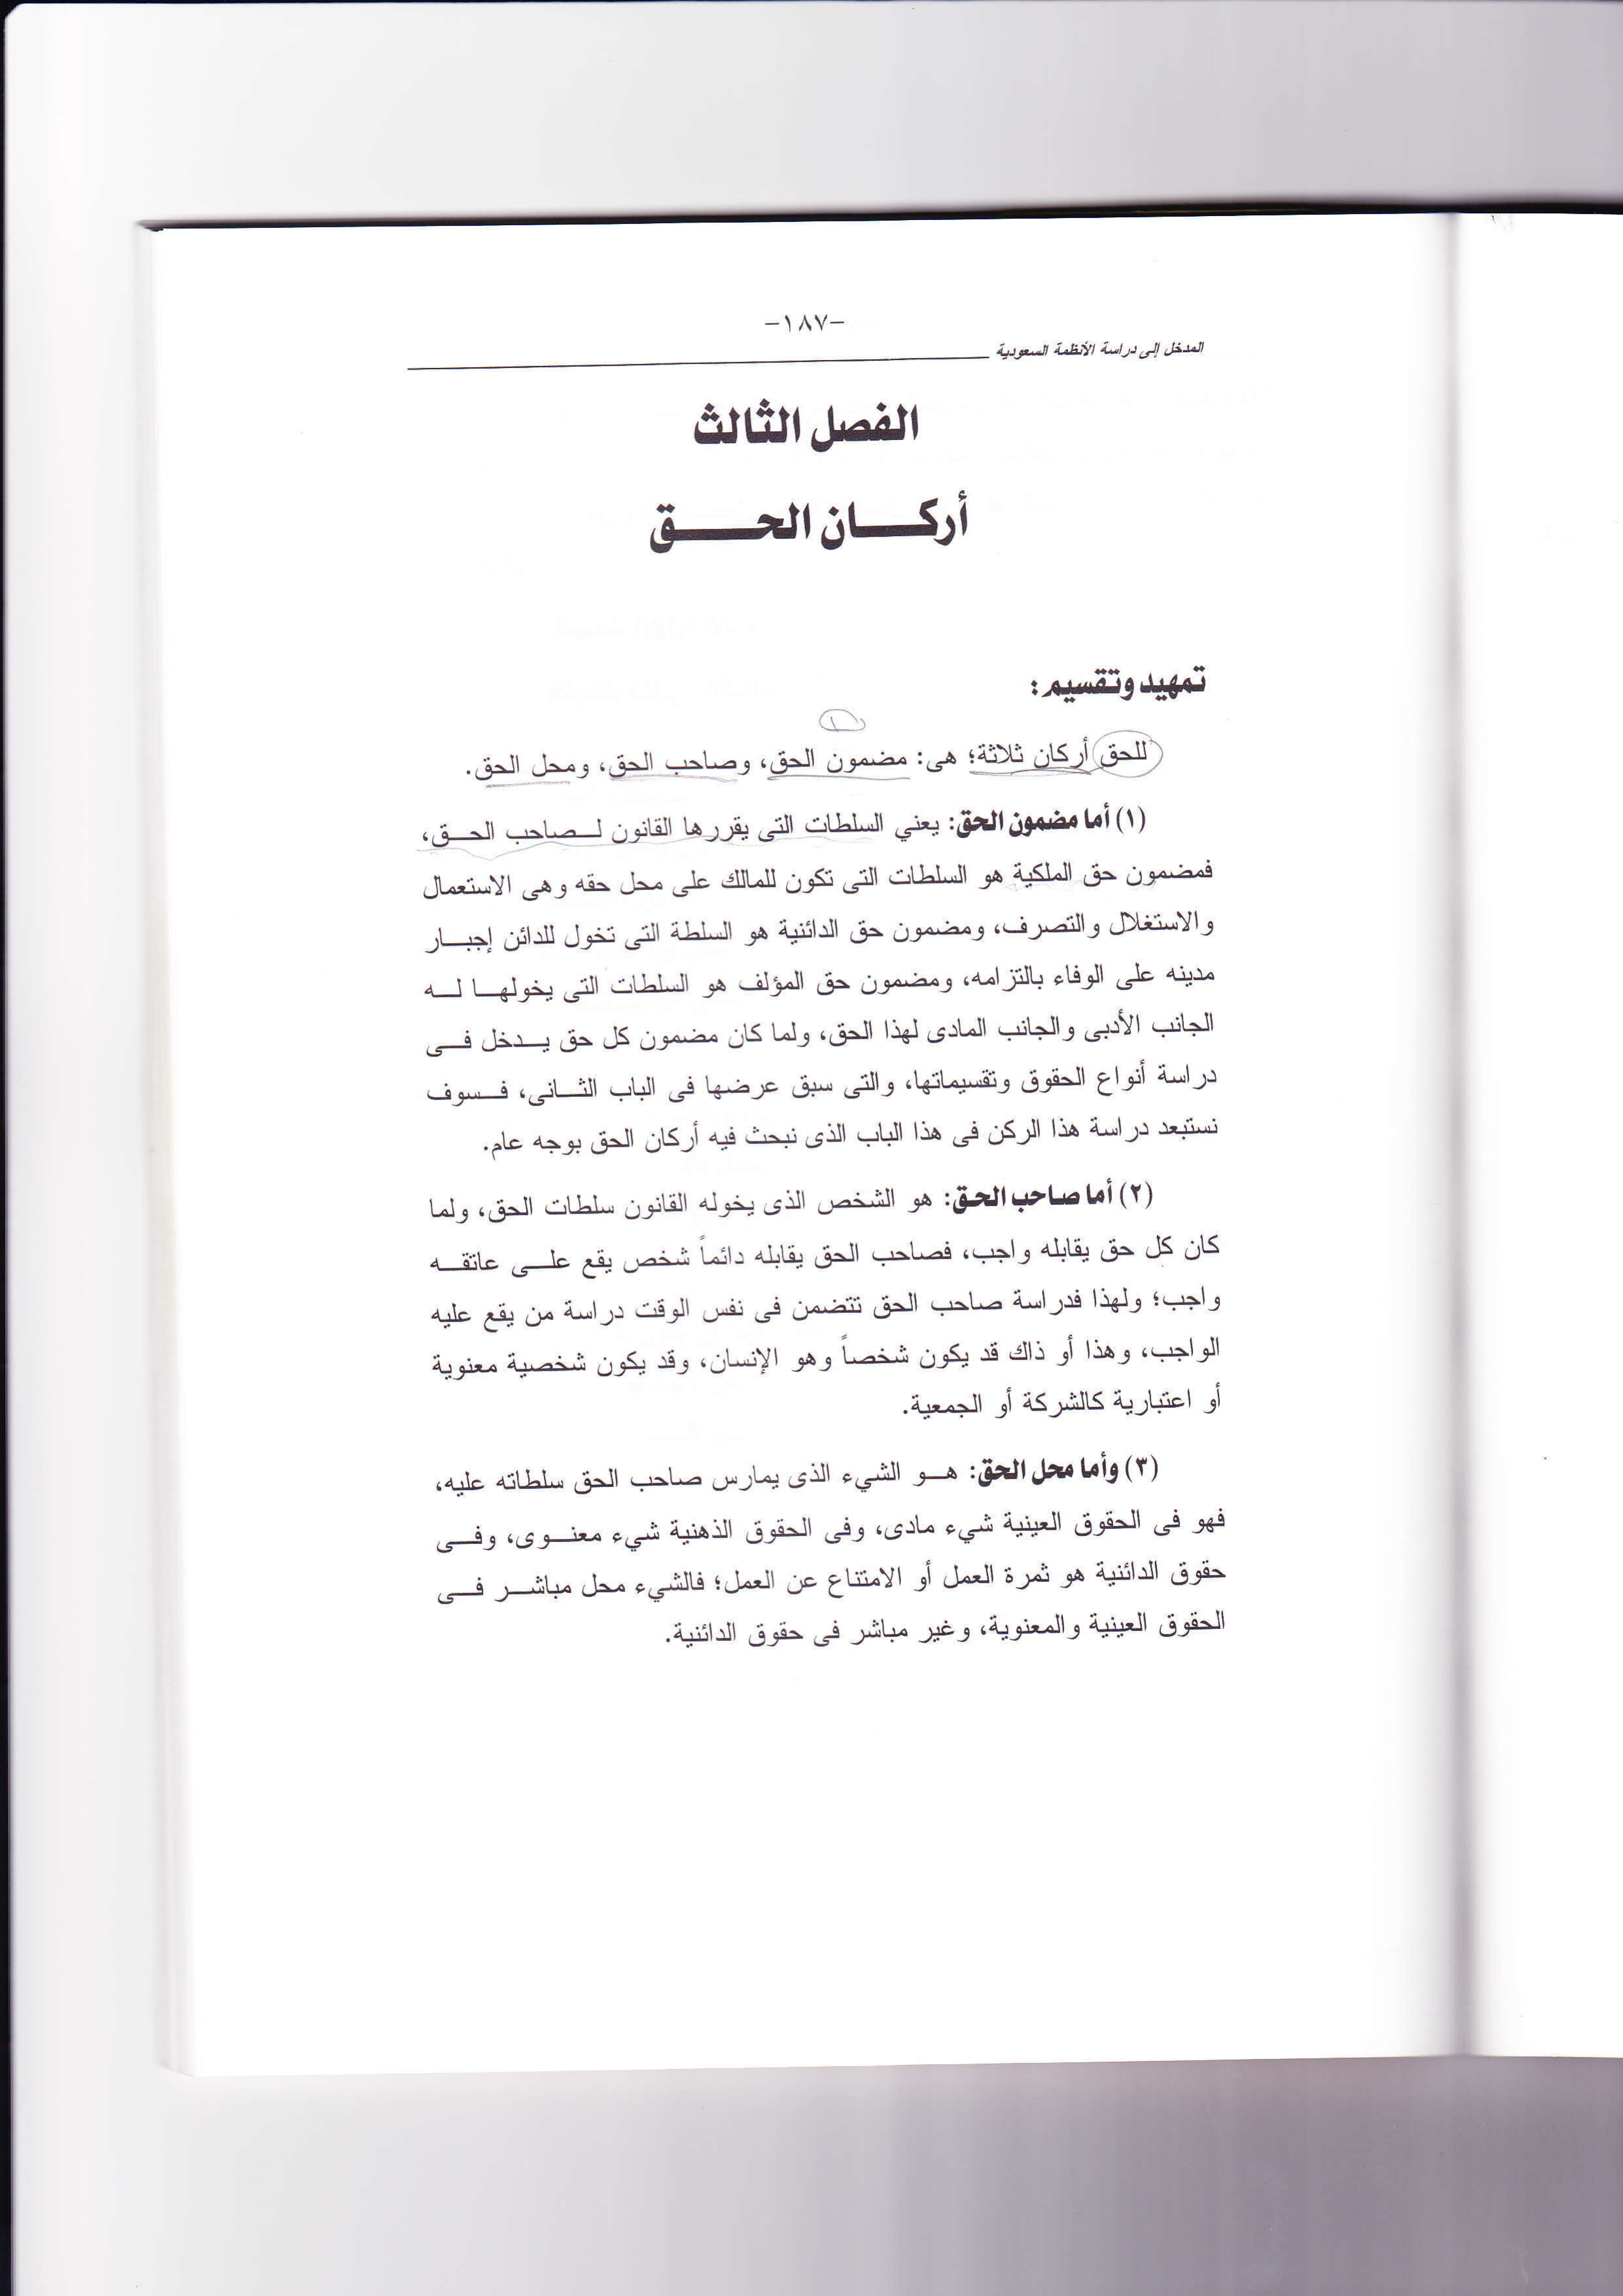 -١٨٧-
المدخل إلى دراسة الأنظمة السعودية
الفصل الثالث
أركان الحق
تمهيد وتقسيم:
١
للحق أركان ثلاثة؛ هى: مضمون الحق، وصاحب الحق، ومحل الحق.
(١) أما مضمون الحق: يعني السلطات التى يقررها القانون لصاحب الحق،
فمضمون حق الملكية هو السلطات التى تكون للمالك على محل حقه وهى الاستعمال
والاستغلال والتصرف، ومضمون حق الدائنية هو السلطة التى تخول للدائن إجبار
مدينه على الوفاء بالتزامه، ومضمون حق المؤلف هو السلطات التى يخولها له
الجانب الأدبى والجانب المادى لهذا الحق، ولما كان مضمون كل حق يدخل فى
دراسة أنواع الحقوق وتقسيماتها، والتى سبق عرضها فى الباب الثانى، فسوف
نستبعد دراسة هذا الركن فى هذا الباب الذى نبحث فيه أركان الحق بوجه عام.
(٢) أما صاحب الحق: هو الشخص الذى يخوله القانون سلطات الحق، ولما
كان كل حق يقابله واجب، فصاحب الحق يقابله دائماً شخص يقع على عاتقه
واجب؛ ولهذا فدراسة صاحب الحق تتضمن فى نفس الوقت دراسة من يقع عليه
الواجب، وهذا أو ذاك قد يكون شخصاً وهو الإنسان، وقد يكون شخصية معنوية
أو اعتبارية كالشركة أو الجمعية.
(٣) وأما محل الحق: هو الشيء الذى يمارس صاحب الحق سلطاته عليه،
فهو فى الحقوق العينية شيء مادى، وفى الحقوق الذهنية شيء معنوى، وفى
حقوق الدائنية هو ثمرة العمل أو الامتناع عن العمل؛ فالشيء محل مباشر فى
الحقوق العينية والمعنوية، وغير مباشر فى حقوق الدائنية.